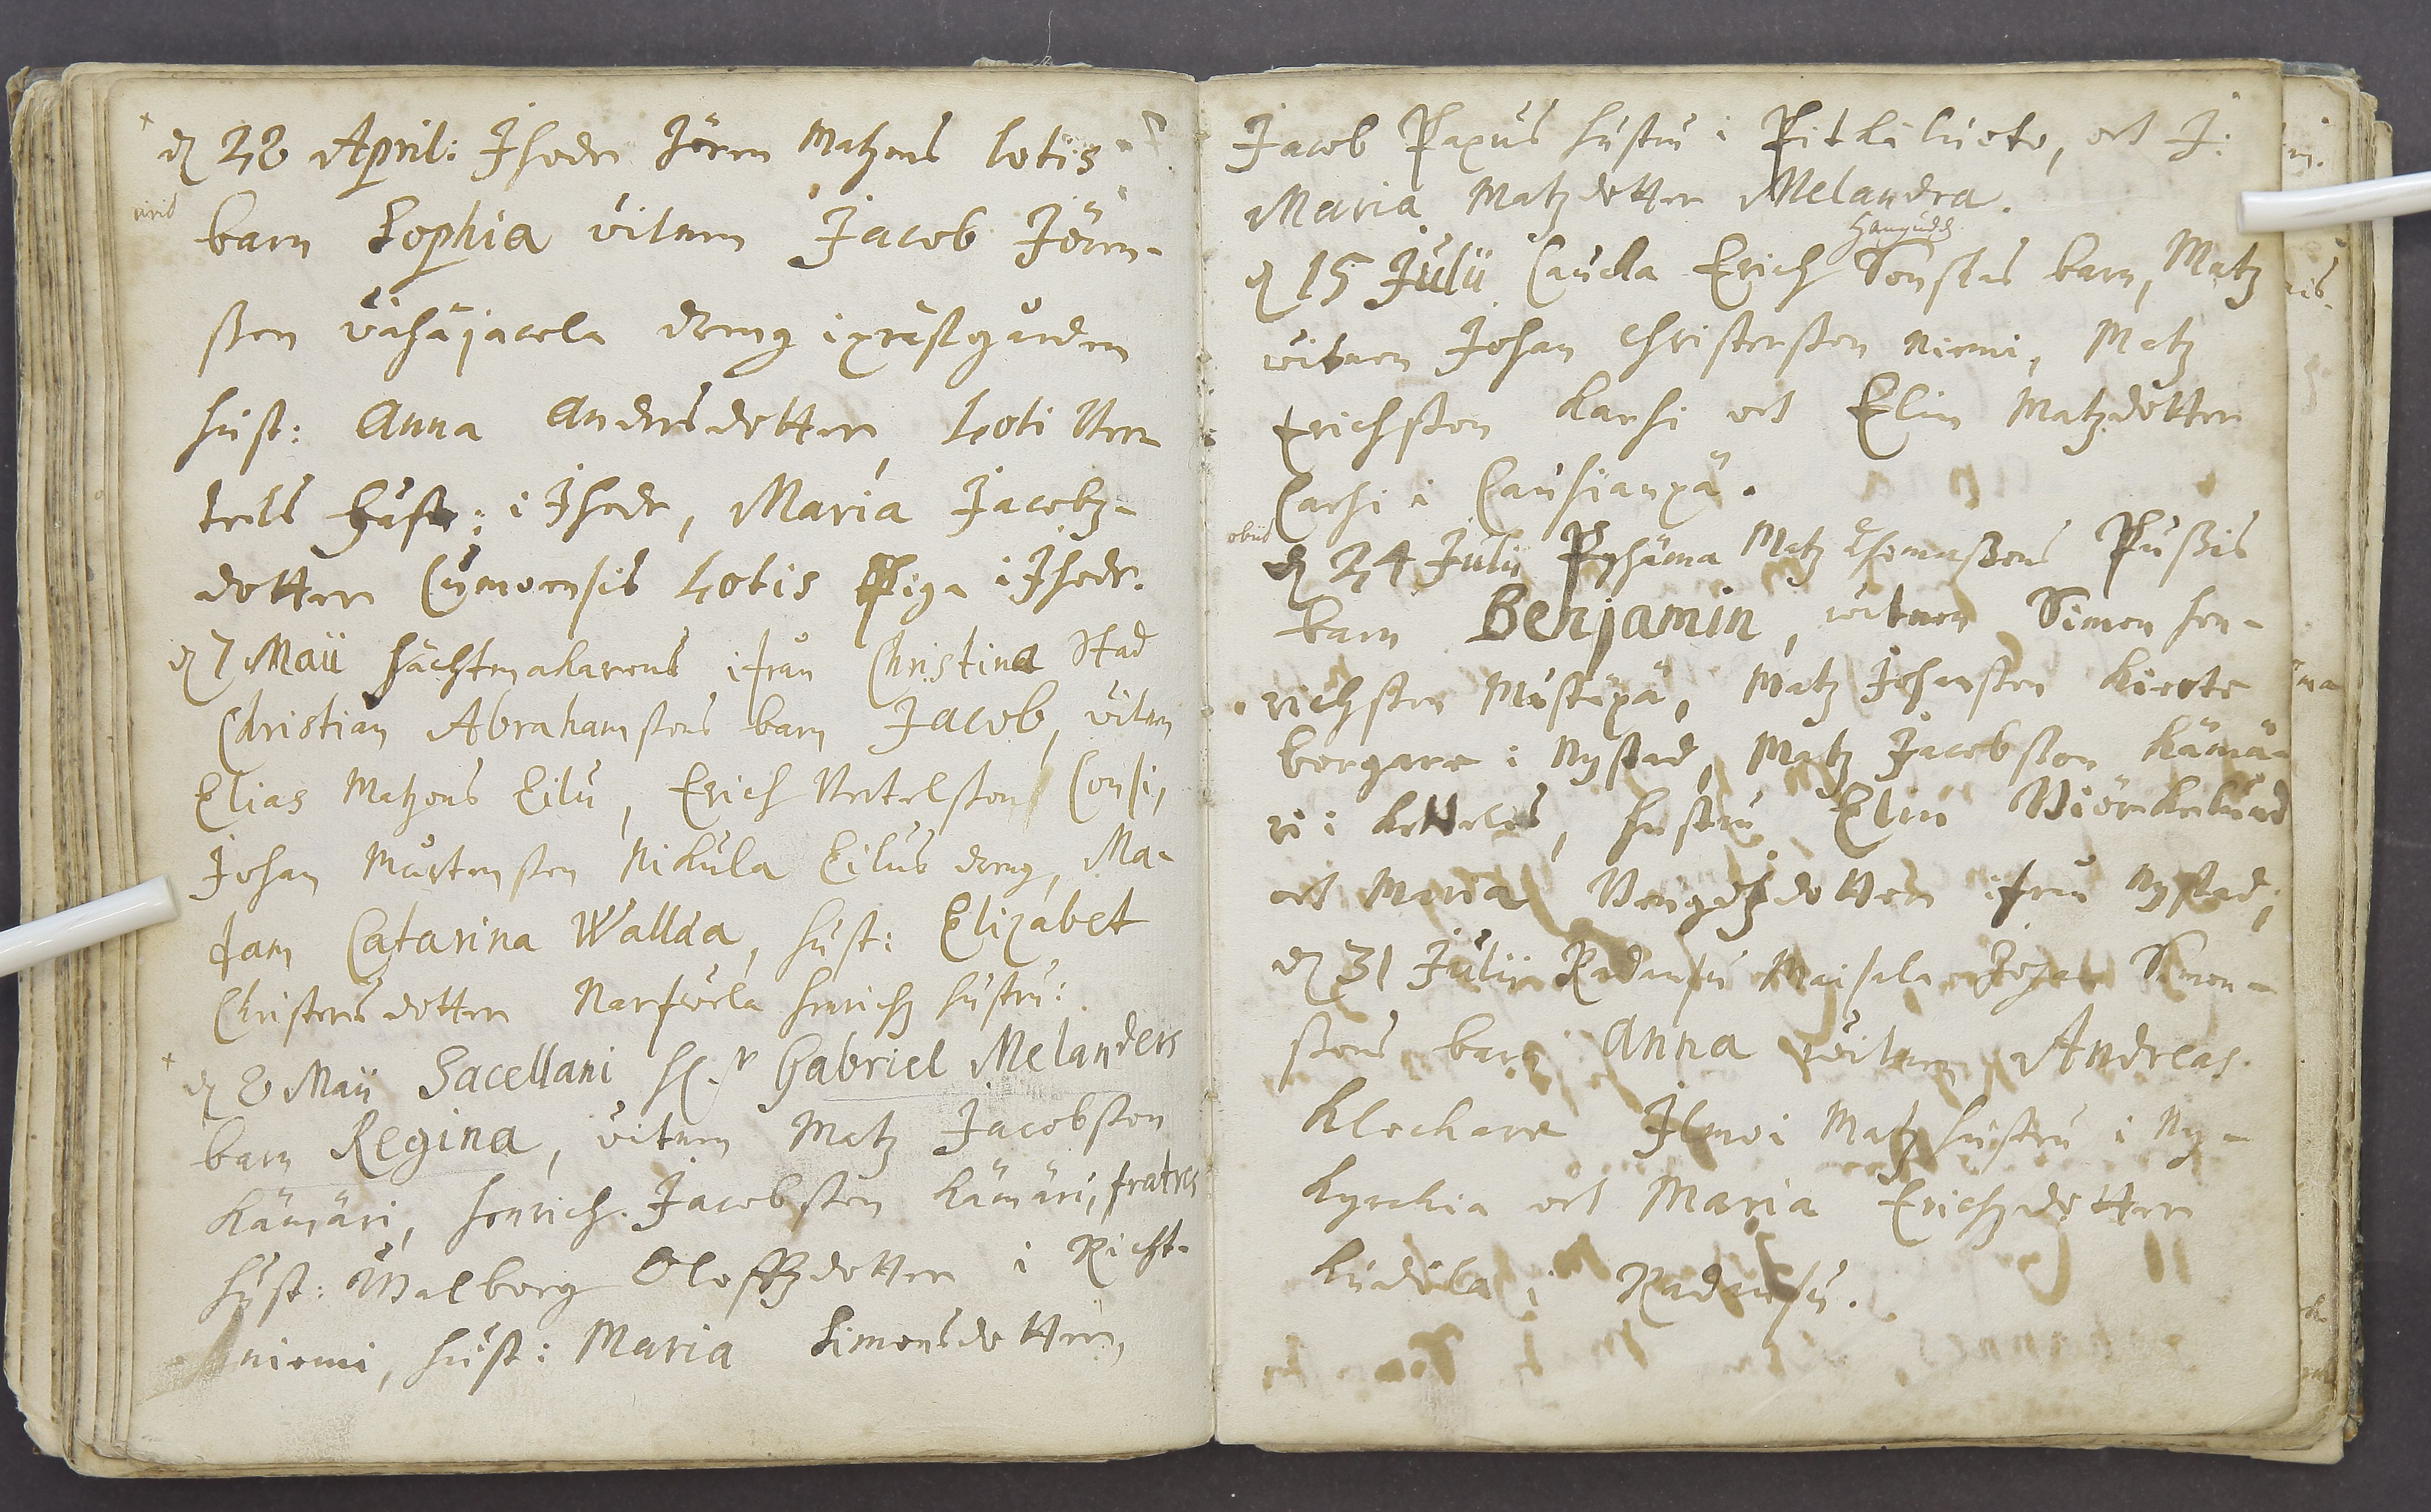 d 28 April: Ihode Jören Matzons Lotis
vivit
barn Sophia vitnen Jacob Jörn-
sson Vähäjacola dreng i prästgården
hust: Anna Andersdotter, Loti Ber-
tels hust: i Ihode, Maria Jacobz-
dotter Cymoensis Lotis Piga i Ihode.
d 7 Maii Hächtmakarens ifrån Christina Stad
Christian Abrahamssons barn Jacob, vitnen
Elias Matzons Eilu, Erich Bertelsson Consi,
Johan Mårtensson Nikula Eilus dreng, Ma-
dam Catarina Wallia, hust: Elizabet
Christersdotter Narfwela Henrichz hustru:
d 8 Maii Sacellani H.r Gabriel Melanders
barn Regina, vitnen Matz Jacobsson
Kämäri, Henrich Jacobsson Kämäri, fratres
hust: Walborg Oloffzdotter i Richt-
niemi, hust: Maria Simonsdotter,
Jacob Papus hustru i Pitkäluoto, och J:
Maria Matzdotter Melandra.
d 15 Julii Caucla Erich Sonstas barn, Matz
witnen Johan Christersson Niemi, Matz
Erichsson Karhi och Elin Matzdotter
Carhi i Cauhianpä.
obiit
d 24 Julii Pyhäma Matz Thomassons Pussis
barn Benjamin, witnen Simon Hen-
richsson Mustapä, Matz Johansson Kierte
borgare i Nystad, Matz Jacobsson Kämä-
ri i Ketteles, hustru Elin Biörkelund
och Maria Bengdzdotter ifrån Nystad;
d 31 Julii Radansu Maisala Johan Simon-
ssons barn Anna witnen Andreas
Klockare Ilmoi Matz hustru i Ny-
kyrckia och Maria Erichzdotter
Kudila i Radansu.